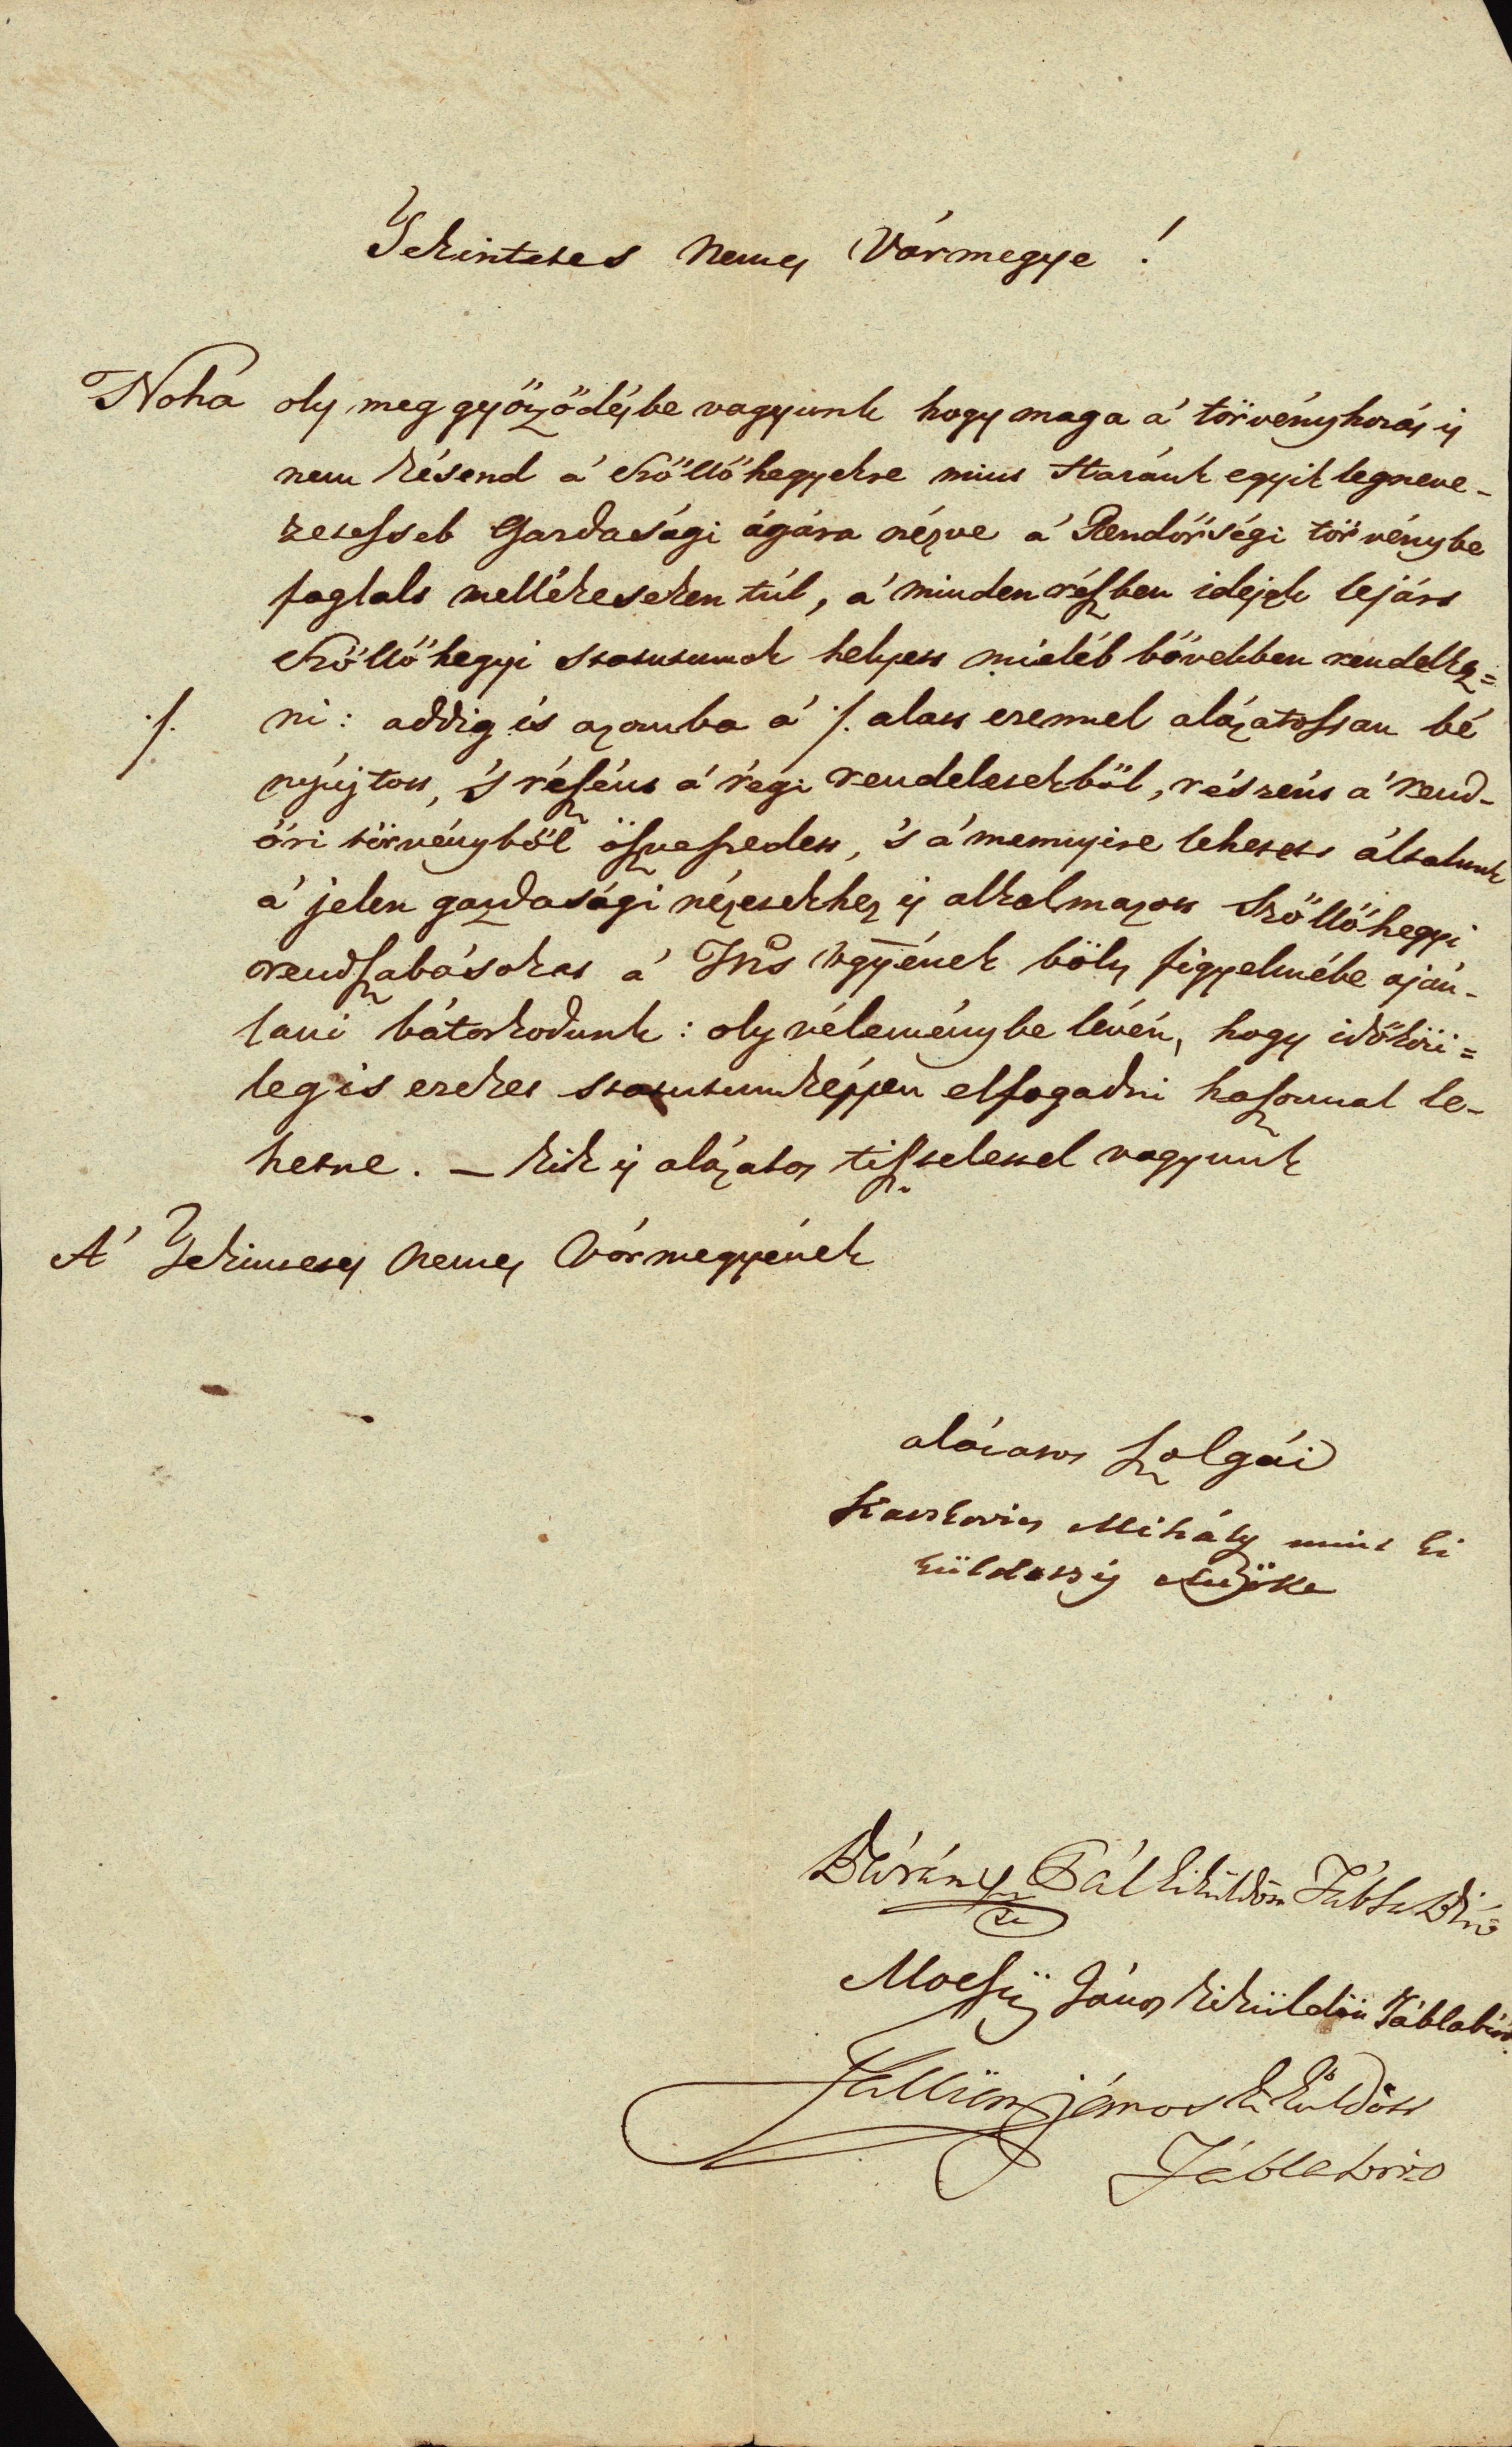 Tekintetes Nemes Vármegye !
Noha oly meg győződésbe vagyunk hogy maga á törvényhozás is
nem késend á Szőllőhegyekre mint Hazánk egyik legneve-
zetessebb Gazdasági ágára nézve á Rendőrségi törvénybe
foglalt mellékeseken túl, á minden részben idejek lejárt
Szőllőhegyi statutumok helyett mielébb bővebben rendelkez=
./. ni: addig is azomba á ./. alatt ezennel alázatossan bé
nyújtott, 's részént á régi rendeletekből, részént á rend-
őri törvényből öszveszedett, 's á mennyire lehetett általunk
á jelen gazdasági nézetekhez is alkalmazott Szőllőhegyi
rendszabásokat á Ttes Vgyének bölts figyelmébe aján-
lani bátorkodunk: oly véleménybe lévén, hogy időköri=
leg is ezeket statutumképpen elfogadni haszonnal le-
hetne. – kik is alázatos tisztelettel vagyunk
A' Tekintetes Nemes Vármegyének
alázatos szolgái
Mihály mint ki
küldettség Elnöke
Bárány Pál kiküldött Tábla Biró
Mocsy János kiküldött Táblabiró.
János kiküldött
Táblabiró